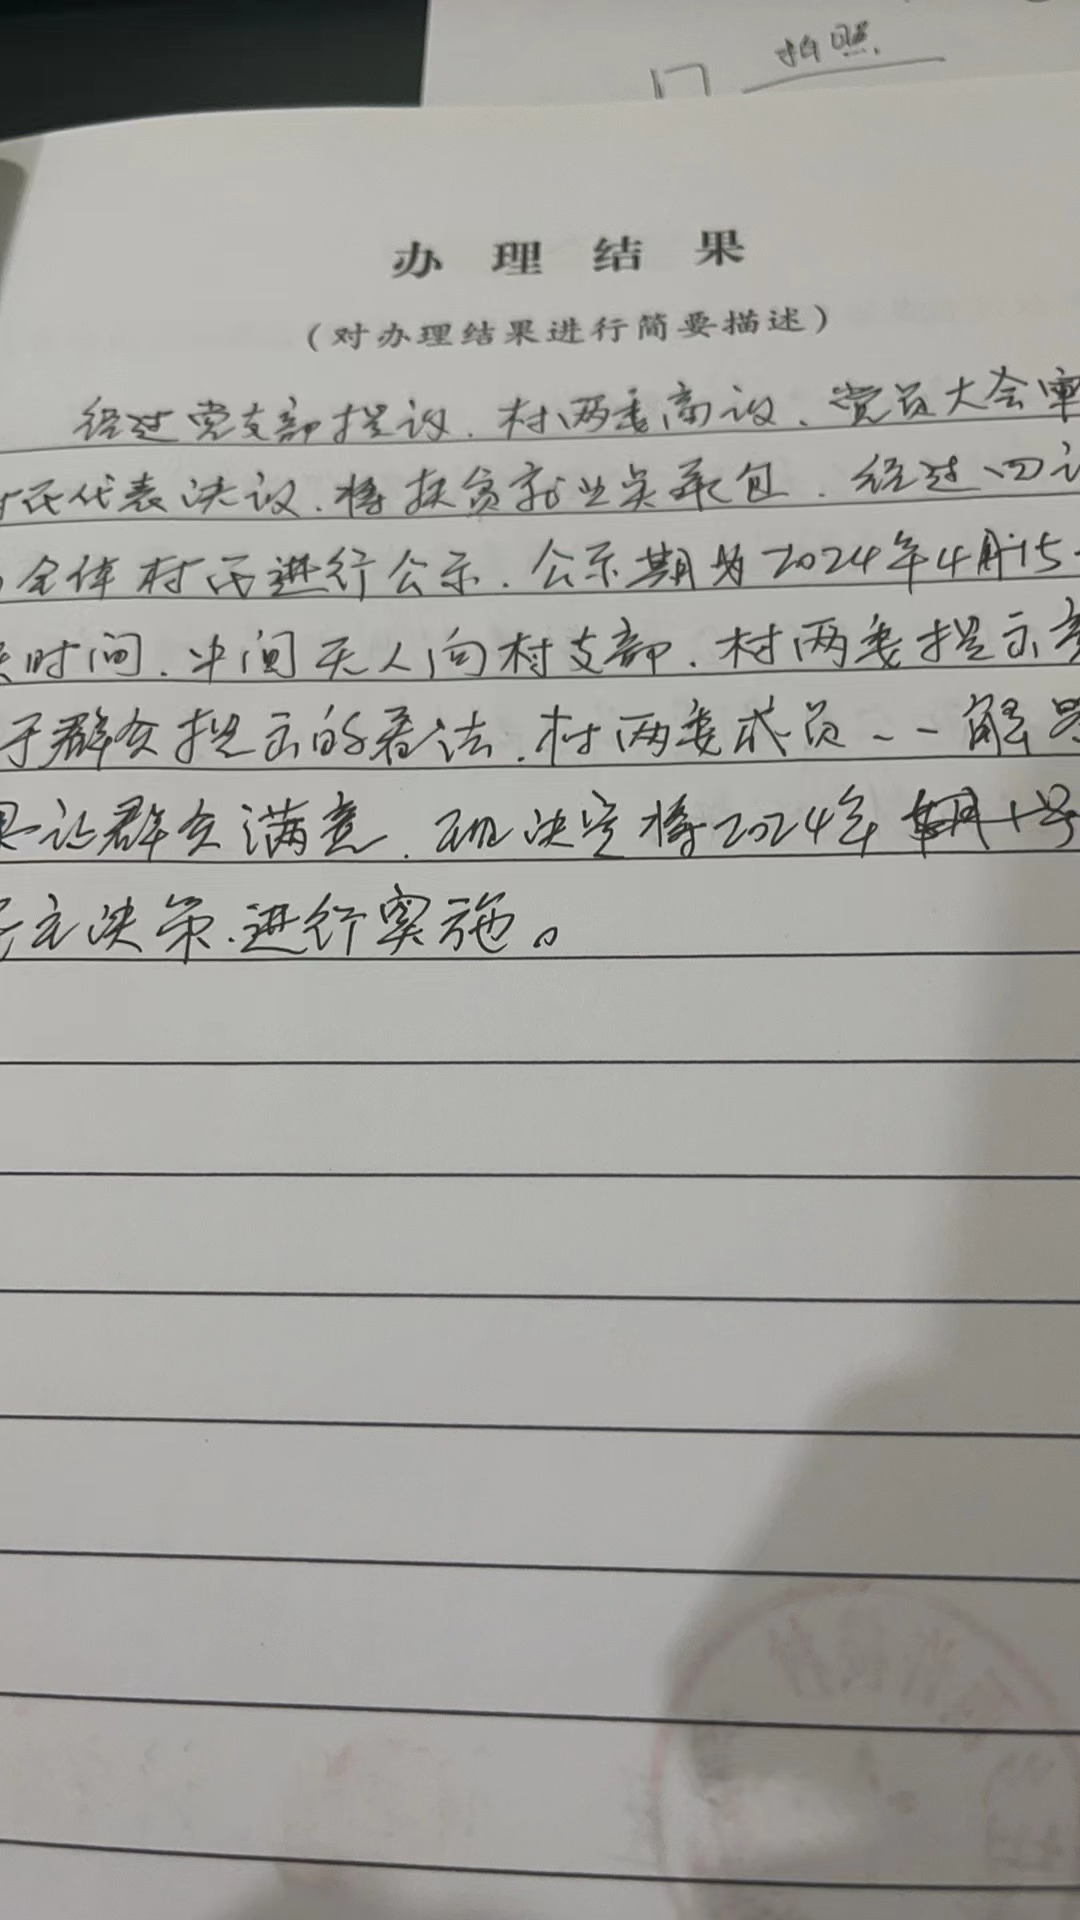 拍照
办理结果
（对办理结果进行简要描述）
经过党支部提议、村两委商议、党员大会审
村民代表决议、将扶贫就业点承包、经过四议
全体村民进行公示、公示期为2024年4月15
时间、中间无人向村支部、村两委提示意
于群众提示的看法、村两委成员一一解答
让群众满意、现决定将2024年
民主决策、进行实施。